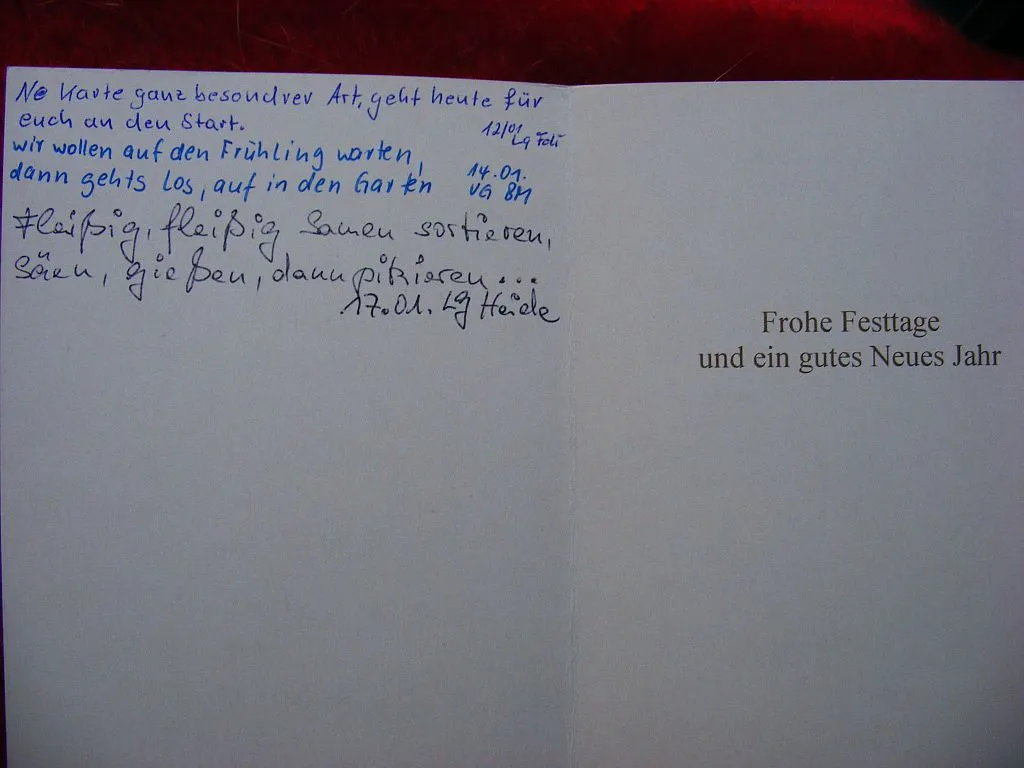 Ne Karte ganz besondrer Art, geht heute für
euch an den Start.
12/01
Lg
wir wollen auf den Frühling warten,
dann gehts los, auf in den Garten
14.01.
VG BM
Fleißig, fleißig Samen sortieren,
Säen, gießen, dann pikieren...
17.01. Lg Heide
Frohe Festtage
und ein gutes Neues Jahr